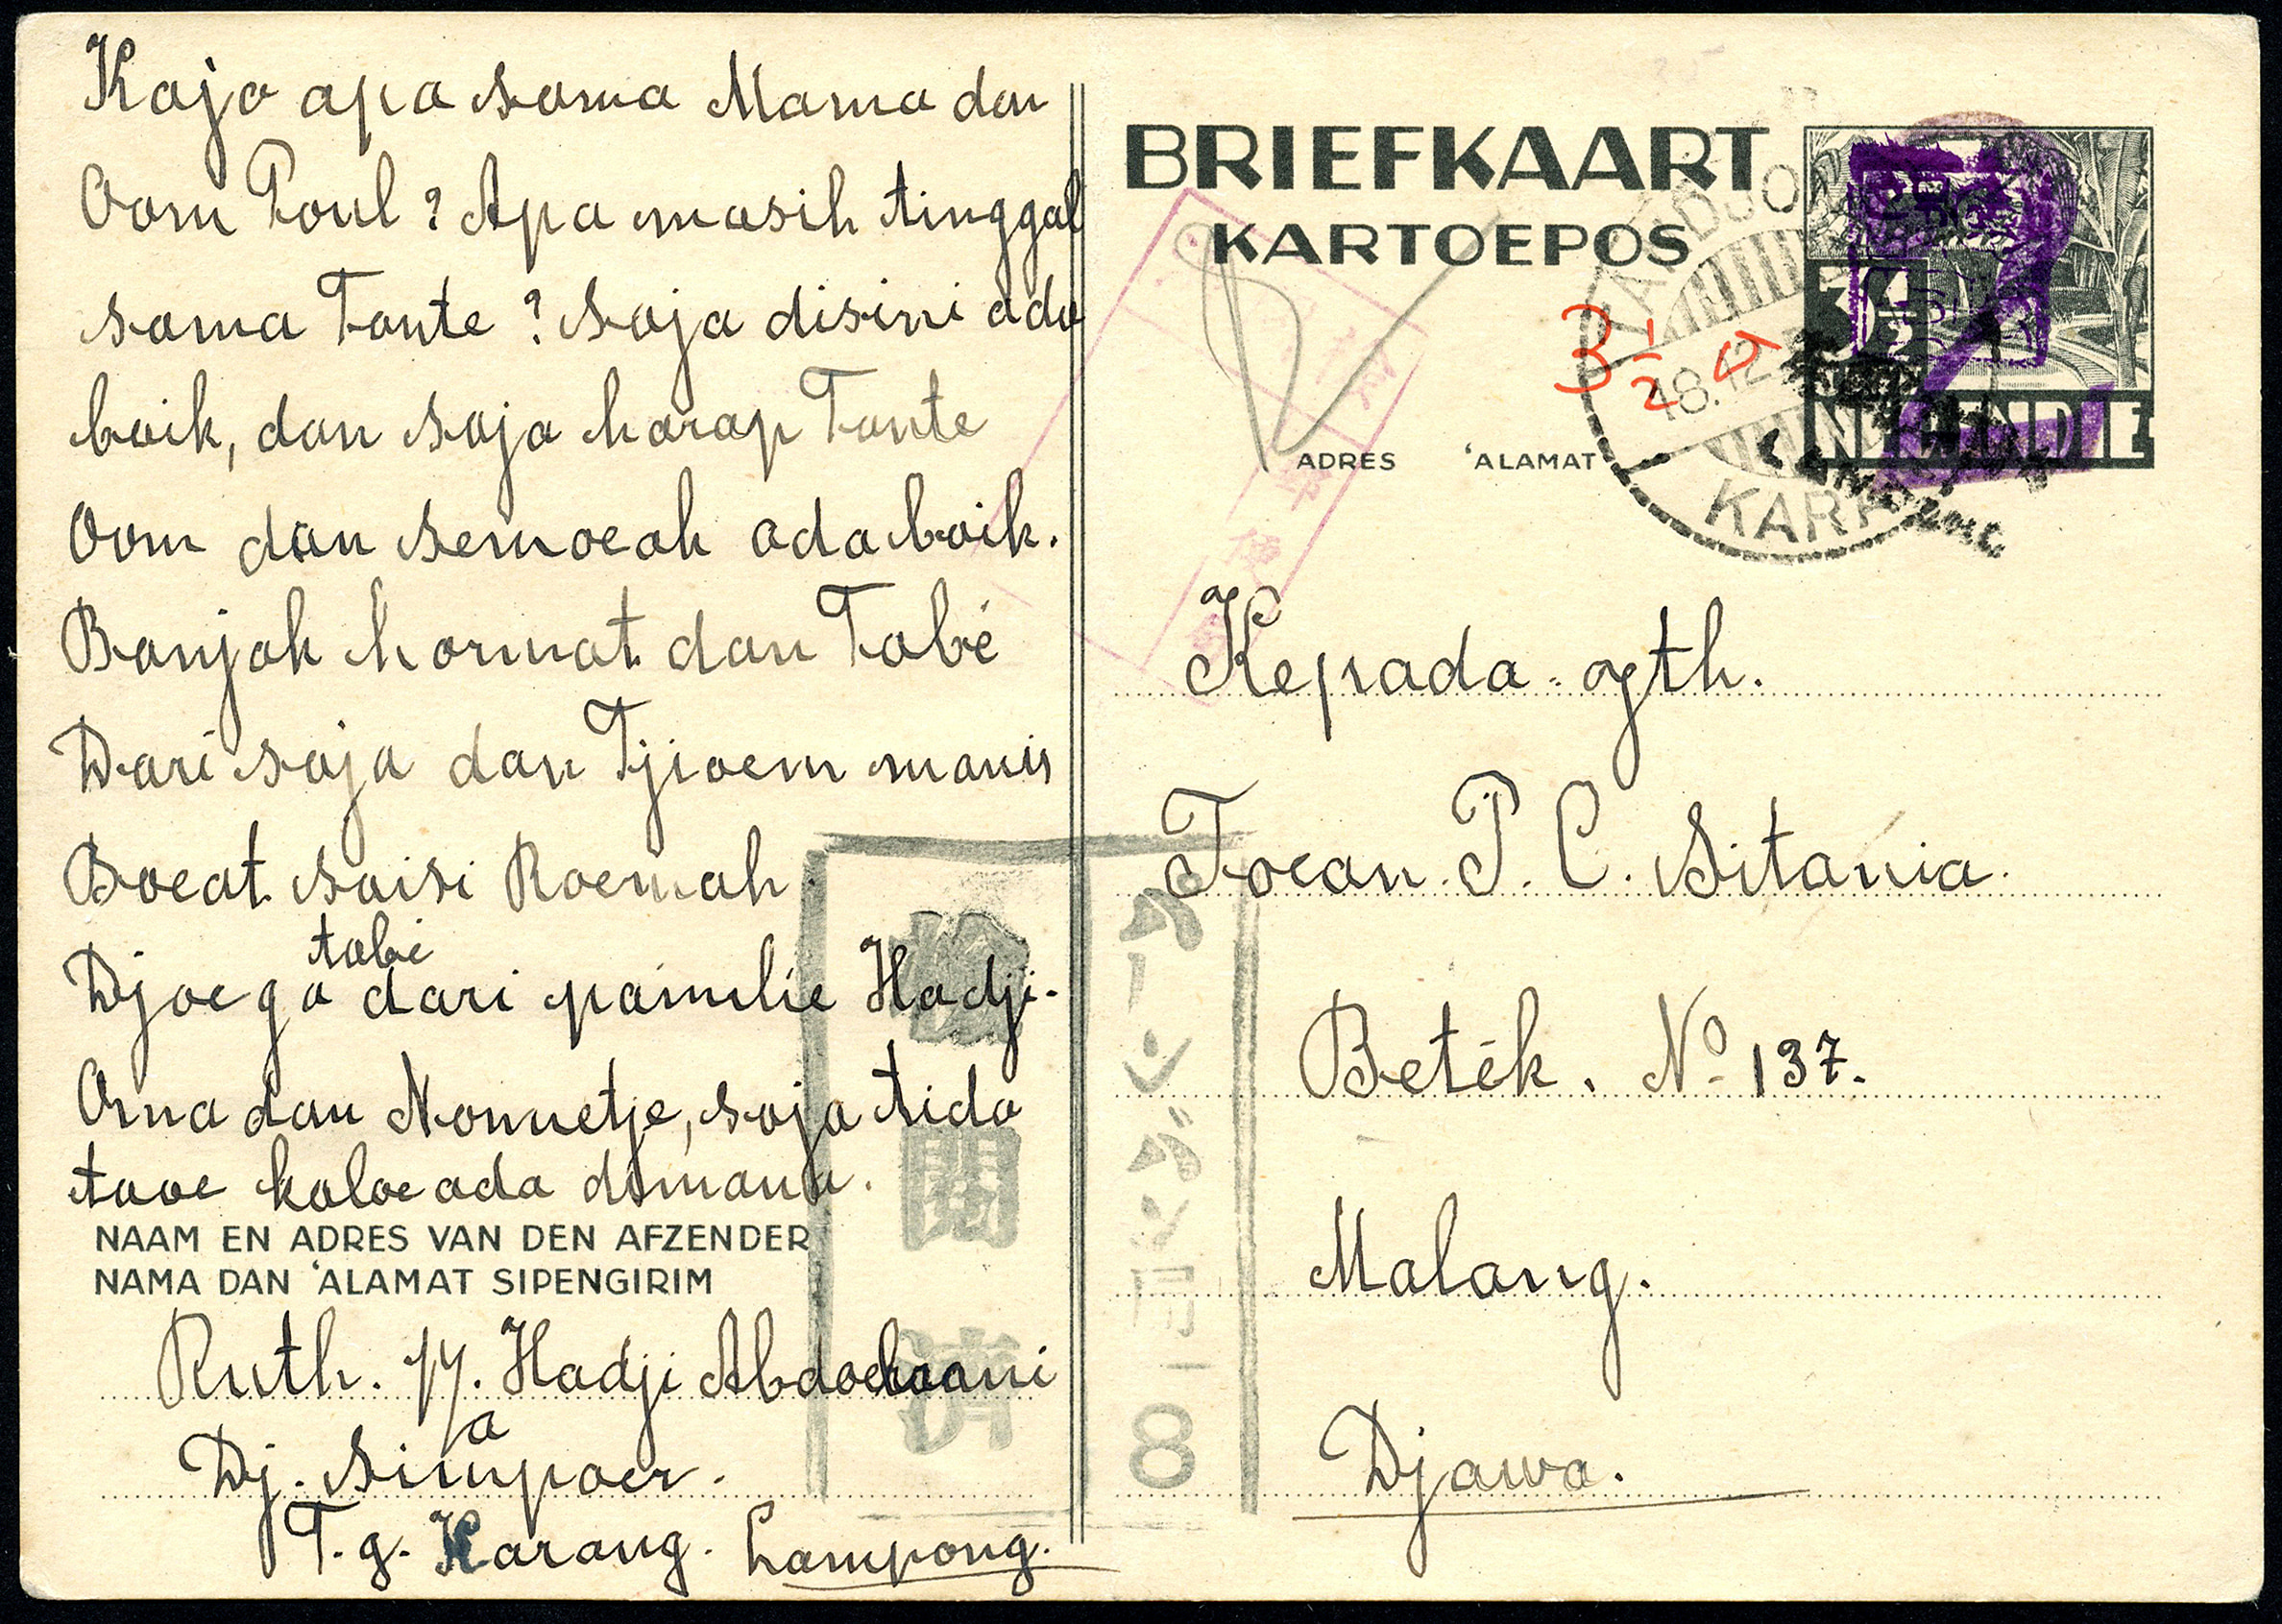 Kaja apa sama Mama dan
Oom Poul? Apa masih tinggal
sama Tante? Saja disini ada
baik, dan saja harap Tante
Oom dan semoeah ada baik.
Banjak hormat dan Tabé
Dari saja dan Tjioem manis
Boeat saisi Roemah.
tabé
Djoega dari pamilie Hadji.
dan Nonnetje, saja tida
taoe kaloe ada dimana.
NAAM EN ADRES VAN DEN AFZENDER
NAMA DAN 'ALAMAT SIPENGIRIM
Ruth. p/a. Hadji
Dj. Simpoer.
T.g. Karang. Lampong.
BRIEFKAART
KARTOEPOS
3 1/2
18.12
KARA
NED. INDIE
ADRES 'ALAMAT
Kepada jth.
Toean. P. C. Sitania.
Beték. No 137.
Malang.
Djawa.
検閲済
8